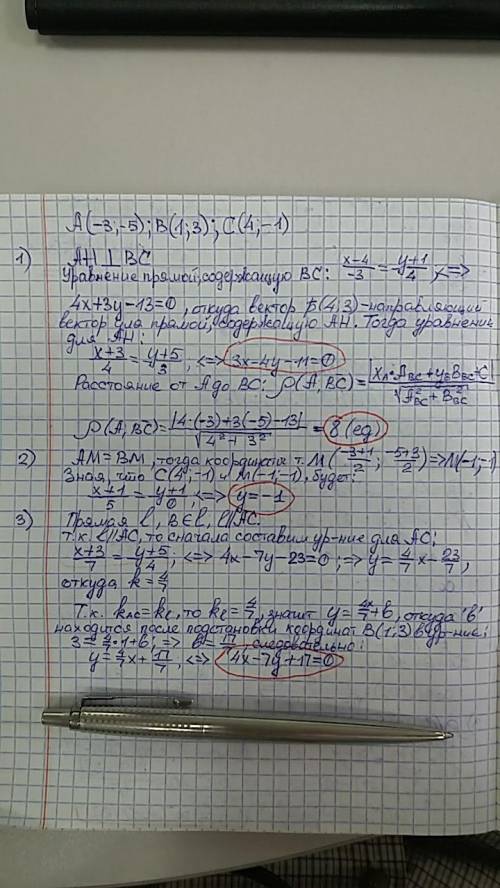 A(-3;-5); B(1;3); C(4;-1)
1) AH ⊥ BC
Уравнение прямой, содержащую BC: (x-4)/(-3) = (y+1)/4, <=>
4x+3y-13=0, откуда вектор p̄(4;3)-направляющий
вектор для прямой, содержащую AH. Тогда уравнение
для AH:
(x+3)/4 = (y+5)/3, <=> 3x-4y-11=0
Расстояние от A до BC: ρ(A,BC)=|x_A·A_BC+y_A·B_BC+C|/√(A²_BC+B²_BC)
ρ(A,BC)=|4·(-3)+3(-5)-13|/√(4²+3²) = 8(ед)
2) AM=BM, тогда координаты т. M((-3+1)/2; (-5+3)/2) => M(-1;-1)
Зная, что C(4;-1) и M(-1;-1), будет:
(x+1)/5 = (y+1)/0, <=> y=-1
3) Прямая ℓ, B∈ℓ, ℓ||AC.
т.к. ℓ||AC, то сначала составим ур-ние для AC:
(x+3)/7 = (y+5)/4, <=> 4x-7y-23=0; => y=4/7x-23/7,
откуда k=4/7
Т.к. k_AC=k_ℓ, то k_ℓ=4/7, значит y=4x/7+b, откуда 'b'
находится после подстановки координат B(1;3) в ур-ние:
3=4/7·1+b; => b=17/7, следовательно:
y=4/7x+17/7, <=> 4x-7y+17=0